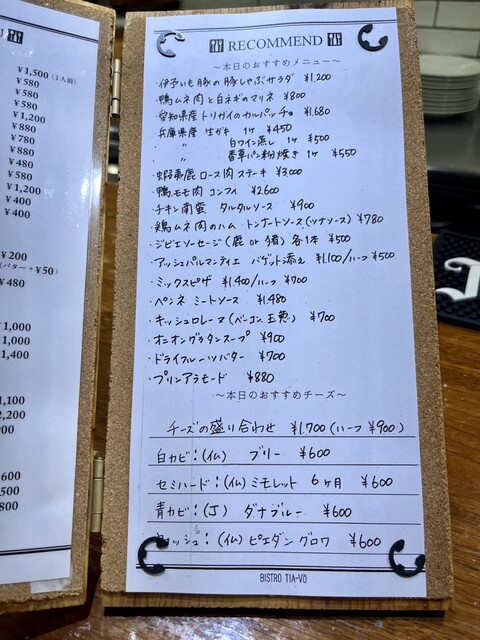 ¥1,500(1人前)
¥580
¥580
¥580
¥1,200
¥880
¥780
¥880
¥480
¥580
¥1,200
¥400
¥400
¥200
(バター+¥50)
¥480
1,000
1,000
1,400
1,100
2,200
900
600
500
800
RECOMMEND
〜本日のおすすめメニュー〜
・伊予いも豚の豚しゃぶサラダ ¥1,200
・鴨ムネ肉と白ネギのマリネ ¥800
・愛知県産トリガイのカルパッチョ ¥1,680
・兵庫県産 生ガキ 1ケ ¥450
〃 白ワイン蒸し 1ケ ¥500
〃 香草パン粉焼き 1ケ ¥550
・蝦夷鹿ロース肉ステーキ ¥3,000
・鴨モモ肉 コンフィ ¥2,600
・チキン南蛮 タルタルソース ¥900
・鶏ムネ肉のハム トンナートソース(ツナソース) ¥780
・ジビエソーセージ(鹿 or 猪) 各1本 ¥500
・アッシェパルマンティエ バゲット添え ¥1,100/ハーフ ¥500
・ミックスピザ ¥1,400/ハーフ ¥700
・ペンネ ミートソース ¥1,480
・キッシュロレーヌ(ベーコン、玉葱) ¥700
・オニオングラタンスープ ¥900
・ドライフルーツバター ¥700
・プリンアラモード ¥880
〜本日のおすすめチーズ〜
チーズの盛り合わせ ¥1,700(ハーフ ¥900)
白カビ:(仏) ブリー ¥600
セミハード:(仏)ミモレット 6ヶ月 ¥600
青カビ:(丁) ダナブルー ¥600
ォッシュ:(仏)ピエダングロワ ¥600
BISTRO TIA-VO